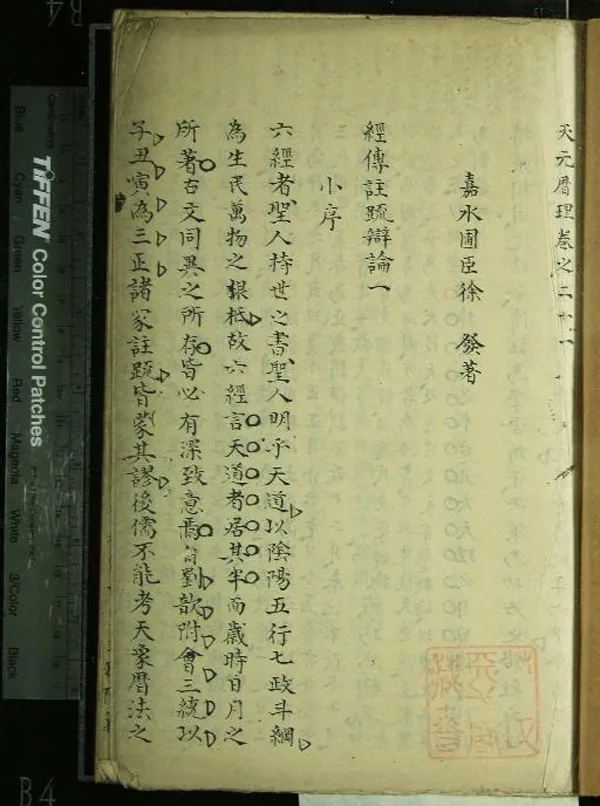 天元曆理卷之二十一
嘉水圃臣徐 發著
經傳註疏辯論一
小序
六經者聖人持世之書聖人明乎天道以陰陽五行七政斗綱
為生民萬物之根柢故六經言天道者居其半而歲時日月之
所著古文同異之所存皆必有深致意焉自劉歆附會三統以
子丑寅為三正諸家註疏皆蒙其謬後儒不能考天象曆法之
TIFFEN Color Control Patches
Blue
Cyan
Green
Yellow
Red
Magenta
White
3/Color
Black
B4